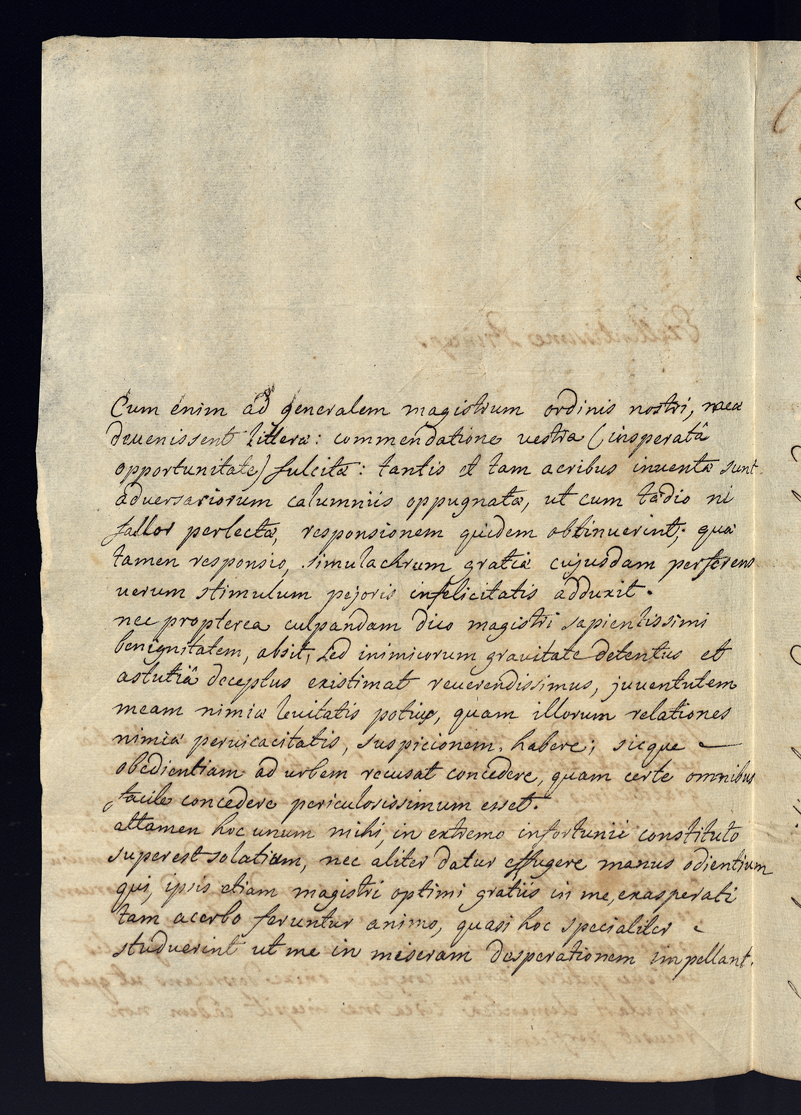 Cum enim ad generalem magistrum ordinis nostri, meæ
devenissent litteræ: commendatione vestra (insperatâ
opportunitate) fulcitæ: tantis et tam acribus inventæ sunt
adversariorum calumniis oppugnatæ, ut cum tædio ni
fallor perlectæ, responsionem quidem obtinuerint; quæ
tamen responsio, simulachrum gratiæ cujusdam perferens
verum stimulum pejoris infelicitatis adduxit.
nec propterea culpandam duco magistri sapientissimi
benignitatem, absit, sed inimicorum gravitate detentus et
astutiâ deceptus existimat reverendissimus, juventutem
meam nimiæ levitatis potius, quam illorum relationes
nimiæ pervicacitatis, suspicionem habere; sicque
obedientiam ad urbem recusat concedere, quam certe omnibus
facile concedere periculosissimum esset.
attamen hoc unum mihi, in extremo infortunii constituto
superest solatium, nec aliter datur effugere manus odientium
qui, ipsis etiam magistri optimi gratiis in me, exasperati
tam acerbo feruntur animo, quasi hoc specialiter
studuerint ut me in miseram desperationem impellant.